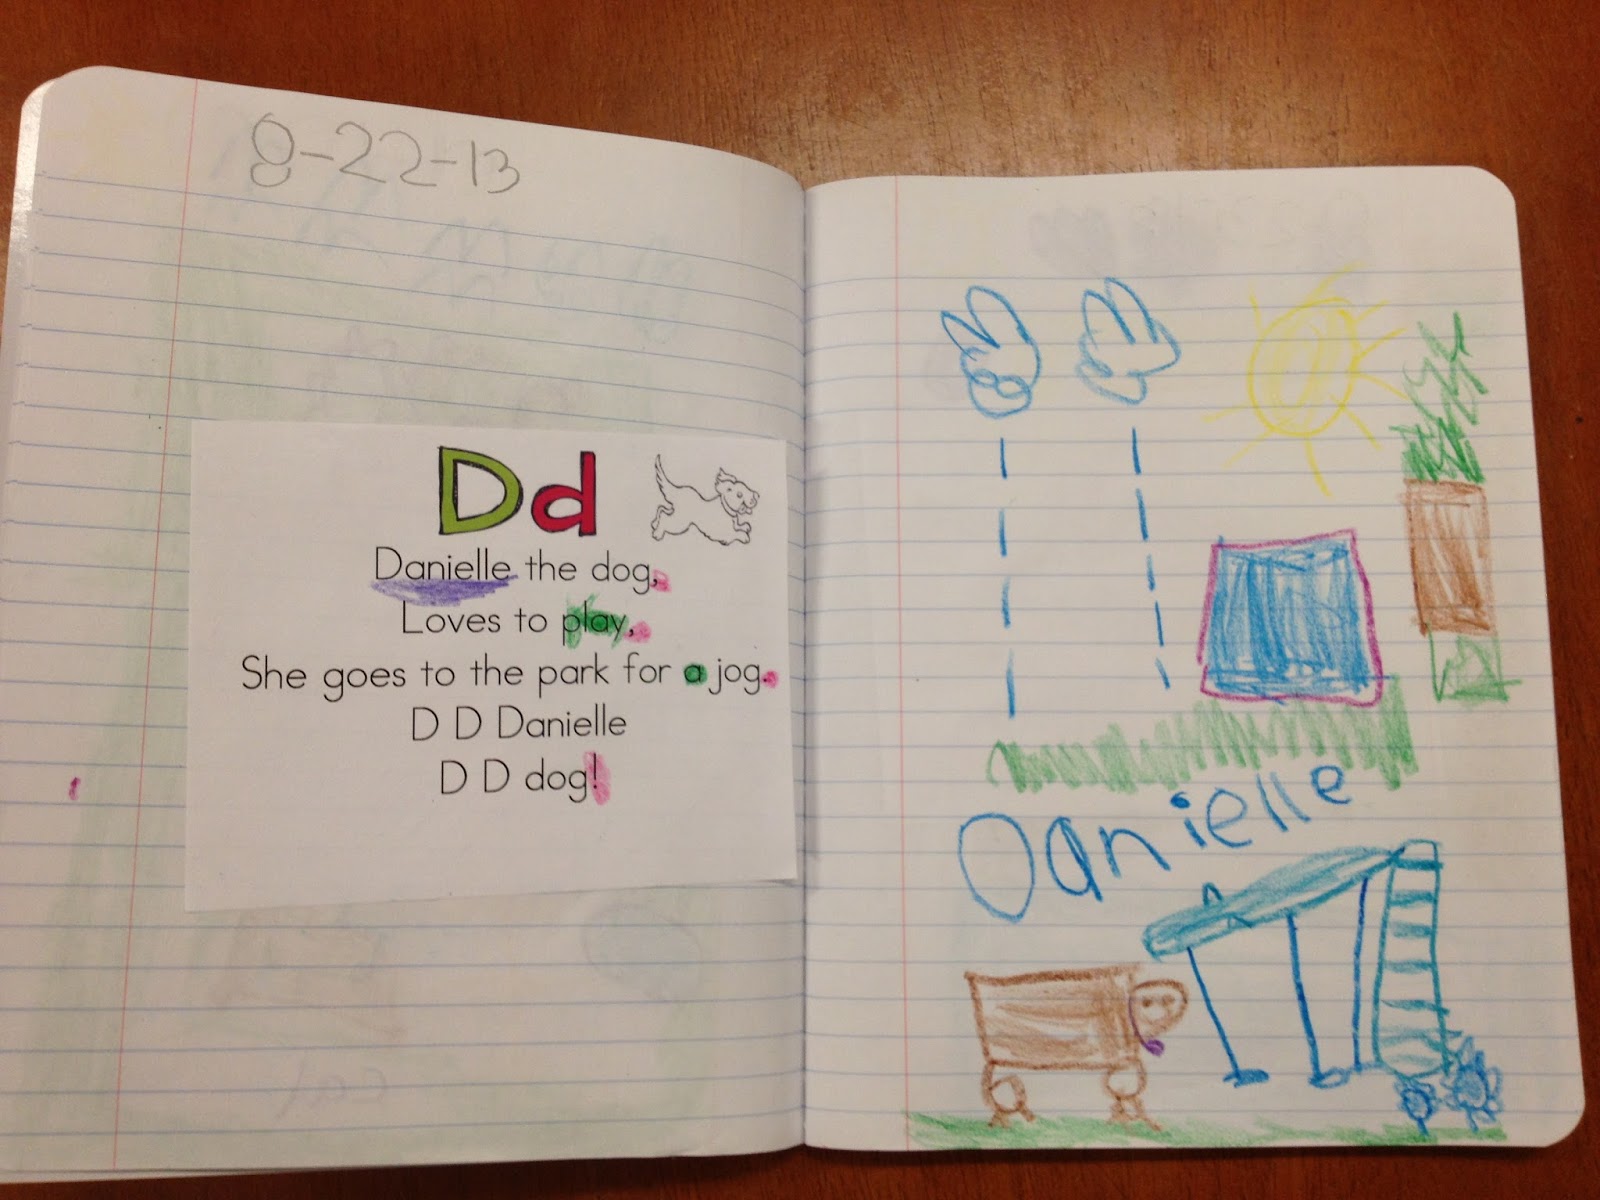 8-22-13
Dd
Danielle the dog,
Loves to play,
She goes to the park for a jog.
D D Danielle
D D dog!
Danielle